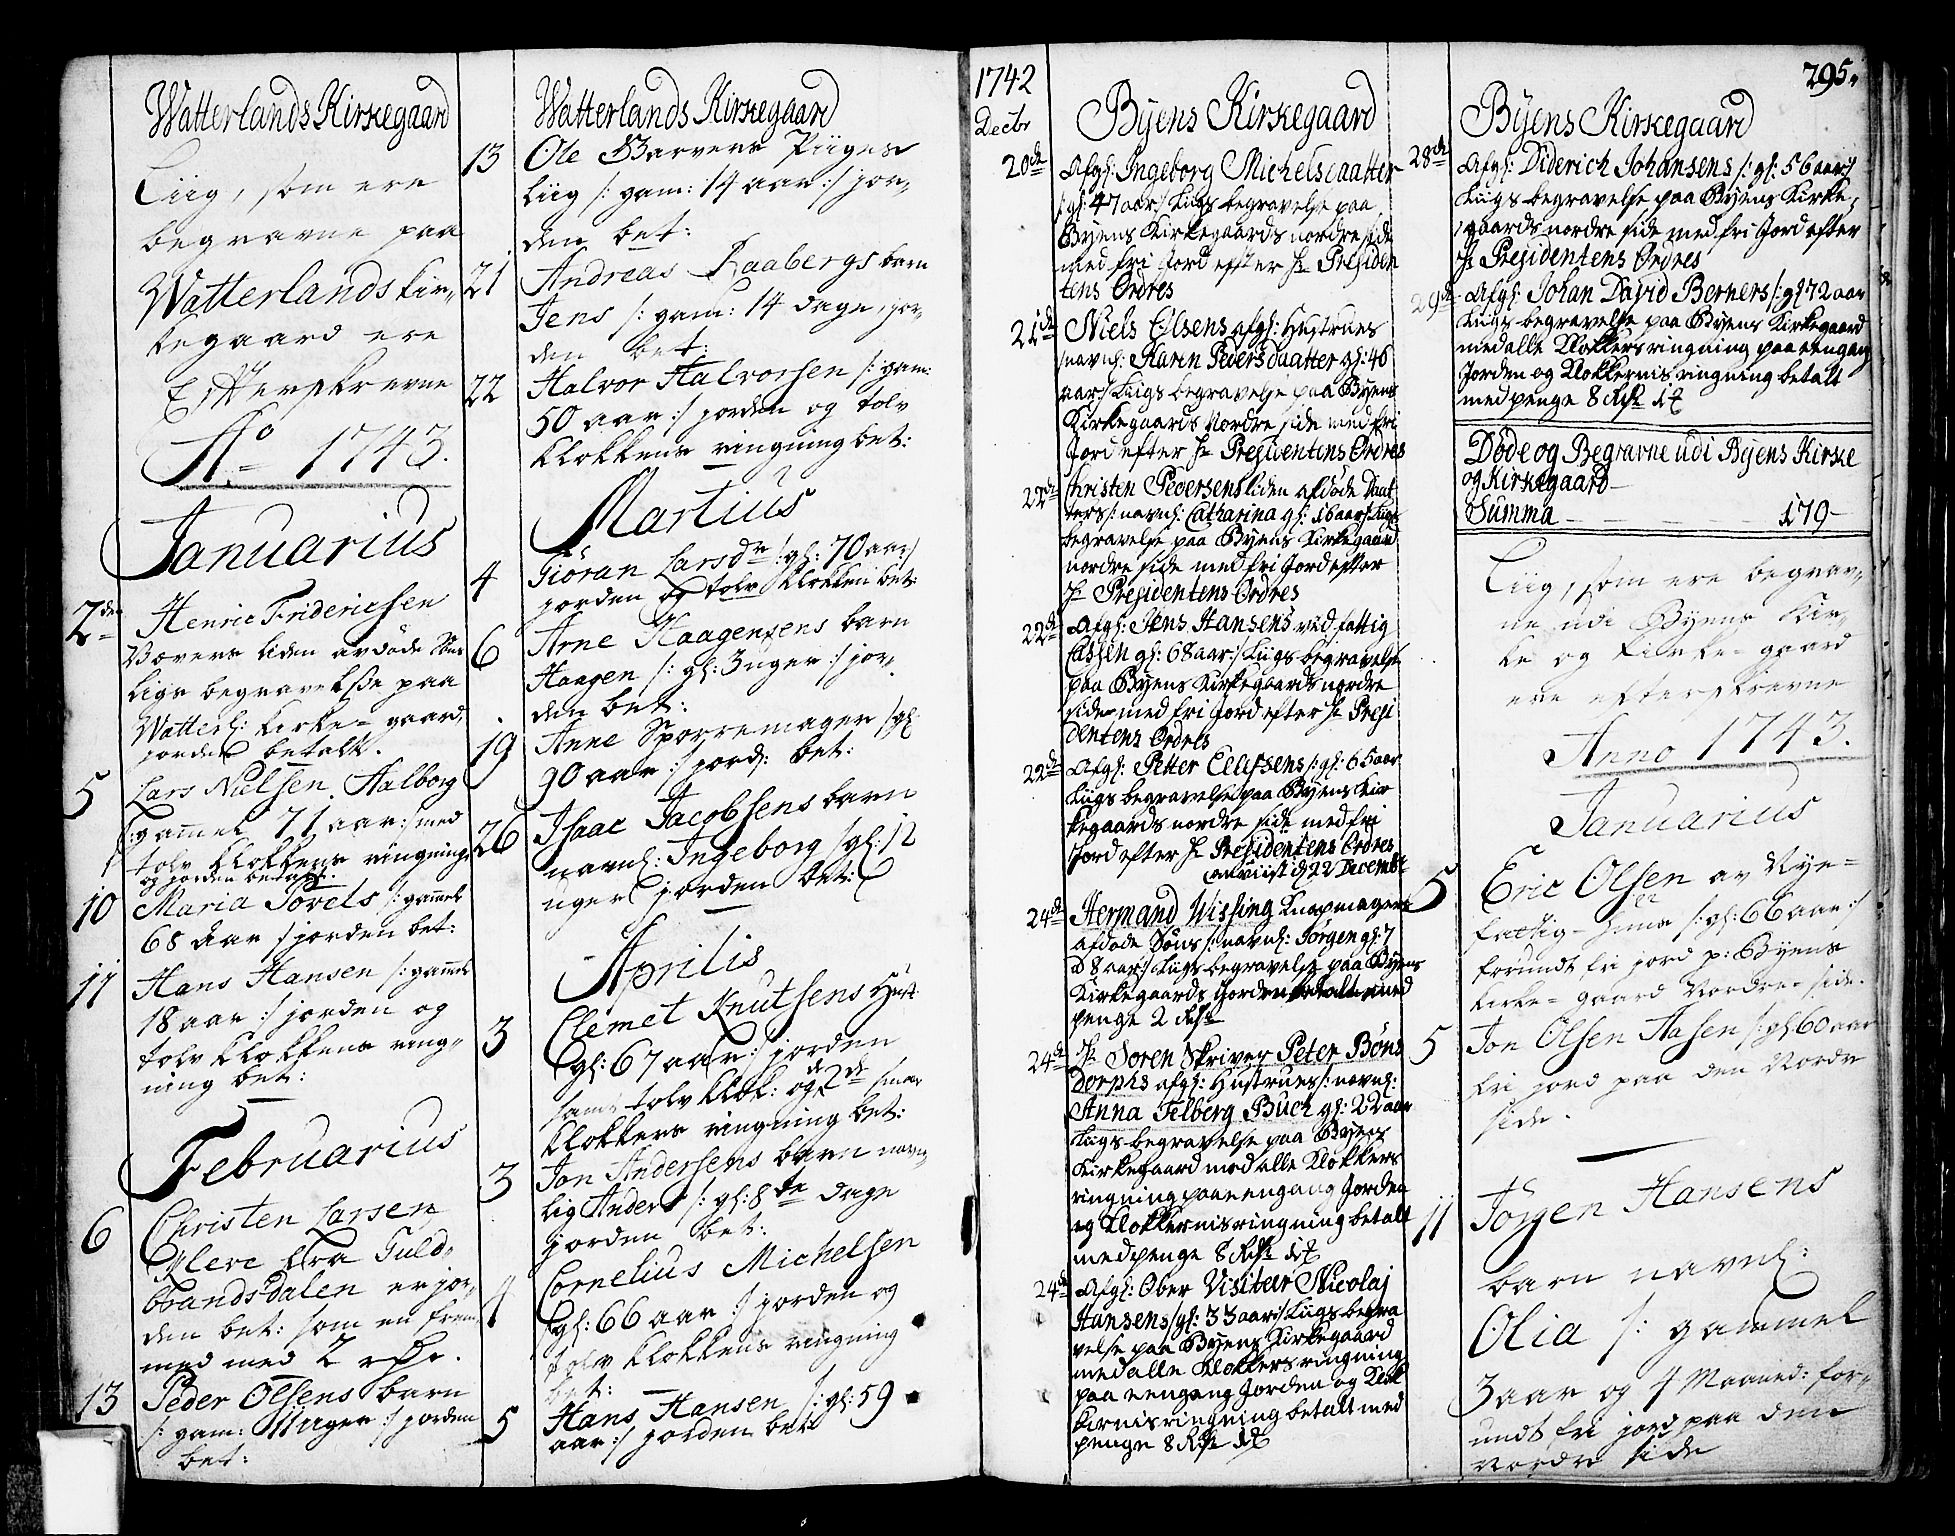 Watterlands Kirkegaard
Liig, som ere
begravne paa
Watterlands kir-
kegaard ere
Efterskrevne
Aº 1743.
Januarius
2den Henric Fridericsen
Vævers liden avdøde Søns
Ligs begravelse paa
Watterl: Kirke= gaard,
jorden betalt.
5 Lars Nielsen Aalborg
/: gamel 71 aar :/ med
tolv klokkens ringning
og jorden betalt.
10 Maria Povels /: gamel
68 Aar / jorden bet:
11 Hans Hansen /: gamel
18 aar :/ jorden og
tolv klokkens ring-
ning bet:
Februarius
6 Christen Larsen
fra Guld-
brandsdalen er jor-
den bet: som en frem
med med 2 rdr.
13 Peder Olsens barn
/: gam: 11 uger :/ jorden
bet:
Watterlands Kirkegaard
13 Ole Garvers Piiges
liig /: gam: 14 aar :/ jor-
den bet:
21 Andreas Raabergs barn
Jens /: gam: 14 dage, jor-
den bet:
22 Halvor Halvorsen /: gam:
50 aar :/ jorden og tolv
klokkens ringning bet:
Martius
4 Giöran Larsdr /: gl: 70 aar :/
jorden og tolv klokken bet:
6 Arne Haagensens barn
Haagen /: gl: 3 uger :/ jor-
den bet:
19 Anne Sporremager /: gl
90 aar :/ jord: bet:
26 Isaac Jacobsens barn
navnl: Ingeborg /: gl: 12
uger jorden bet:
Aprilis
3 Clemet Knutsens Hust
/: gl: 67 aar :/ jorden
samt tolv klok: og de 2de smaa
klokkers ringning bet:
3 Jon Andersens barn navn-
lig Anders /: gl: 8te dage
jorden bet:
4 Cornelius Michelsen
/: gl: 66 aar :/ jorden og
tolv klokkens ringning
bet:
5 Hans Hansen /: gl: 59
aar :/ jorden bet:
1742
Decbr
Byens Kirkegaard
20de Afgl: Ingeborg Michelsdaatter
/: gl: 47 aar :/ Liigs begravelse paa
Byens Kirkegaards nordre side
med fri Jord efter Hr Presiden
tens Ordres
21de Niels Olsens afgl: Hustrues
/: navnl: Karen Pedersdaatter gl: 46
aar :/ Liigs begravelse paa Byens
Kirkegaards Nordre side med fri
Jord efter Hr Presidentens Ordres
22de Christen Pedersens liden afdøde Daat
ters /: navnl: Catharina gl: 16 aar :/ Liigs
begravelse paa Byens Kirkegaard
nordre side med fri Jord efter
Hr Presidentens Ordres
22de Afgl: Jens Hansens ved fattig
Cassen gl: 68 aar :/ Liigs begravelse
paa Byens Kirkegaards nordre
side med fri Jord efter Hr Presi
dentens Ordres
22de Afgl: Petter Ellefsens /: gl: 65 aar
Liigs begravelse paa Byens Kir
kegaards nordre side med fri
Jord efter Hr Presidentens Ordres
anviist d: 22 Decembr
24de Hermand Wissing Knapmagers
afdøde Søns /: navnl: Jørgen gl: 7
a 8 aar :/ Liigs begravelse paa Byens
Kirkegaards Jorden betalt med
penge 2 Rdr
24de Hr Soren Skriver Peter Bøns
dorphs afgl: Hustrues /: navnl:
Anna Felberg Buch gl: 22 aar
Liigs begravelse paa Byens
Kirkegaard med alle Klokkers
ringning paa eengang Jorden
og Klokkernis ringning betalt
med penge 8 Rdr 1 ort
24de Afgl: Ober Visiteur Nicolaj
Hansens /: gl: 33 aar :/ Liigs begra
velse paa Byens Kirkegaard
med alle Klokkers ringning
paa eengang Jorden og Klok
kernis ringning betalt med
penge 8 Rdr 1 ort
295.
Byens Kirkegaard
28de Afgl: Diderich Johansens /: gl: 56 aar :/
Liigs begravelse paa Byens Kirke-
gaards nordre side med fri Jord efter
Hr Presidentens Ordres
29de Afgl: Johan David Berners /: gl: 72 aar
Liigs begravelse paa Byens Kirkegaard
med alle Klokkers ringning paa eengang
Jorden og Klokkernis ringning betalt
med penge 8 Rdr 1 ort
Døde og Begravne udi Byens Kirke
og Kirkegaard
Summa 179
Liig, som ere begrav-
ne udi Byens Kir-
ke og Kirke= gaard
ere efterskrevne
Anno 1743.
Januarius
5 Eric Olsen av Nye=
fattig= huus /: gl: 66 aar :/
forundt fri jord p: Byens
Kirke= gaard Nordre= side.
5 Jon Olsen Aasen /: gl: 60 aar
fri jord paa den Nordre
side.
11 Jörgen Hansens
barn navnl:
Olia /: gammel
3 aar og 4 Maaned: for-
undt fri jord paa den
Nordre side